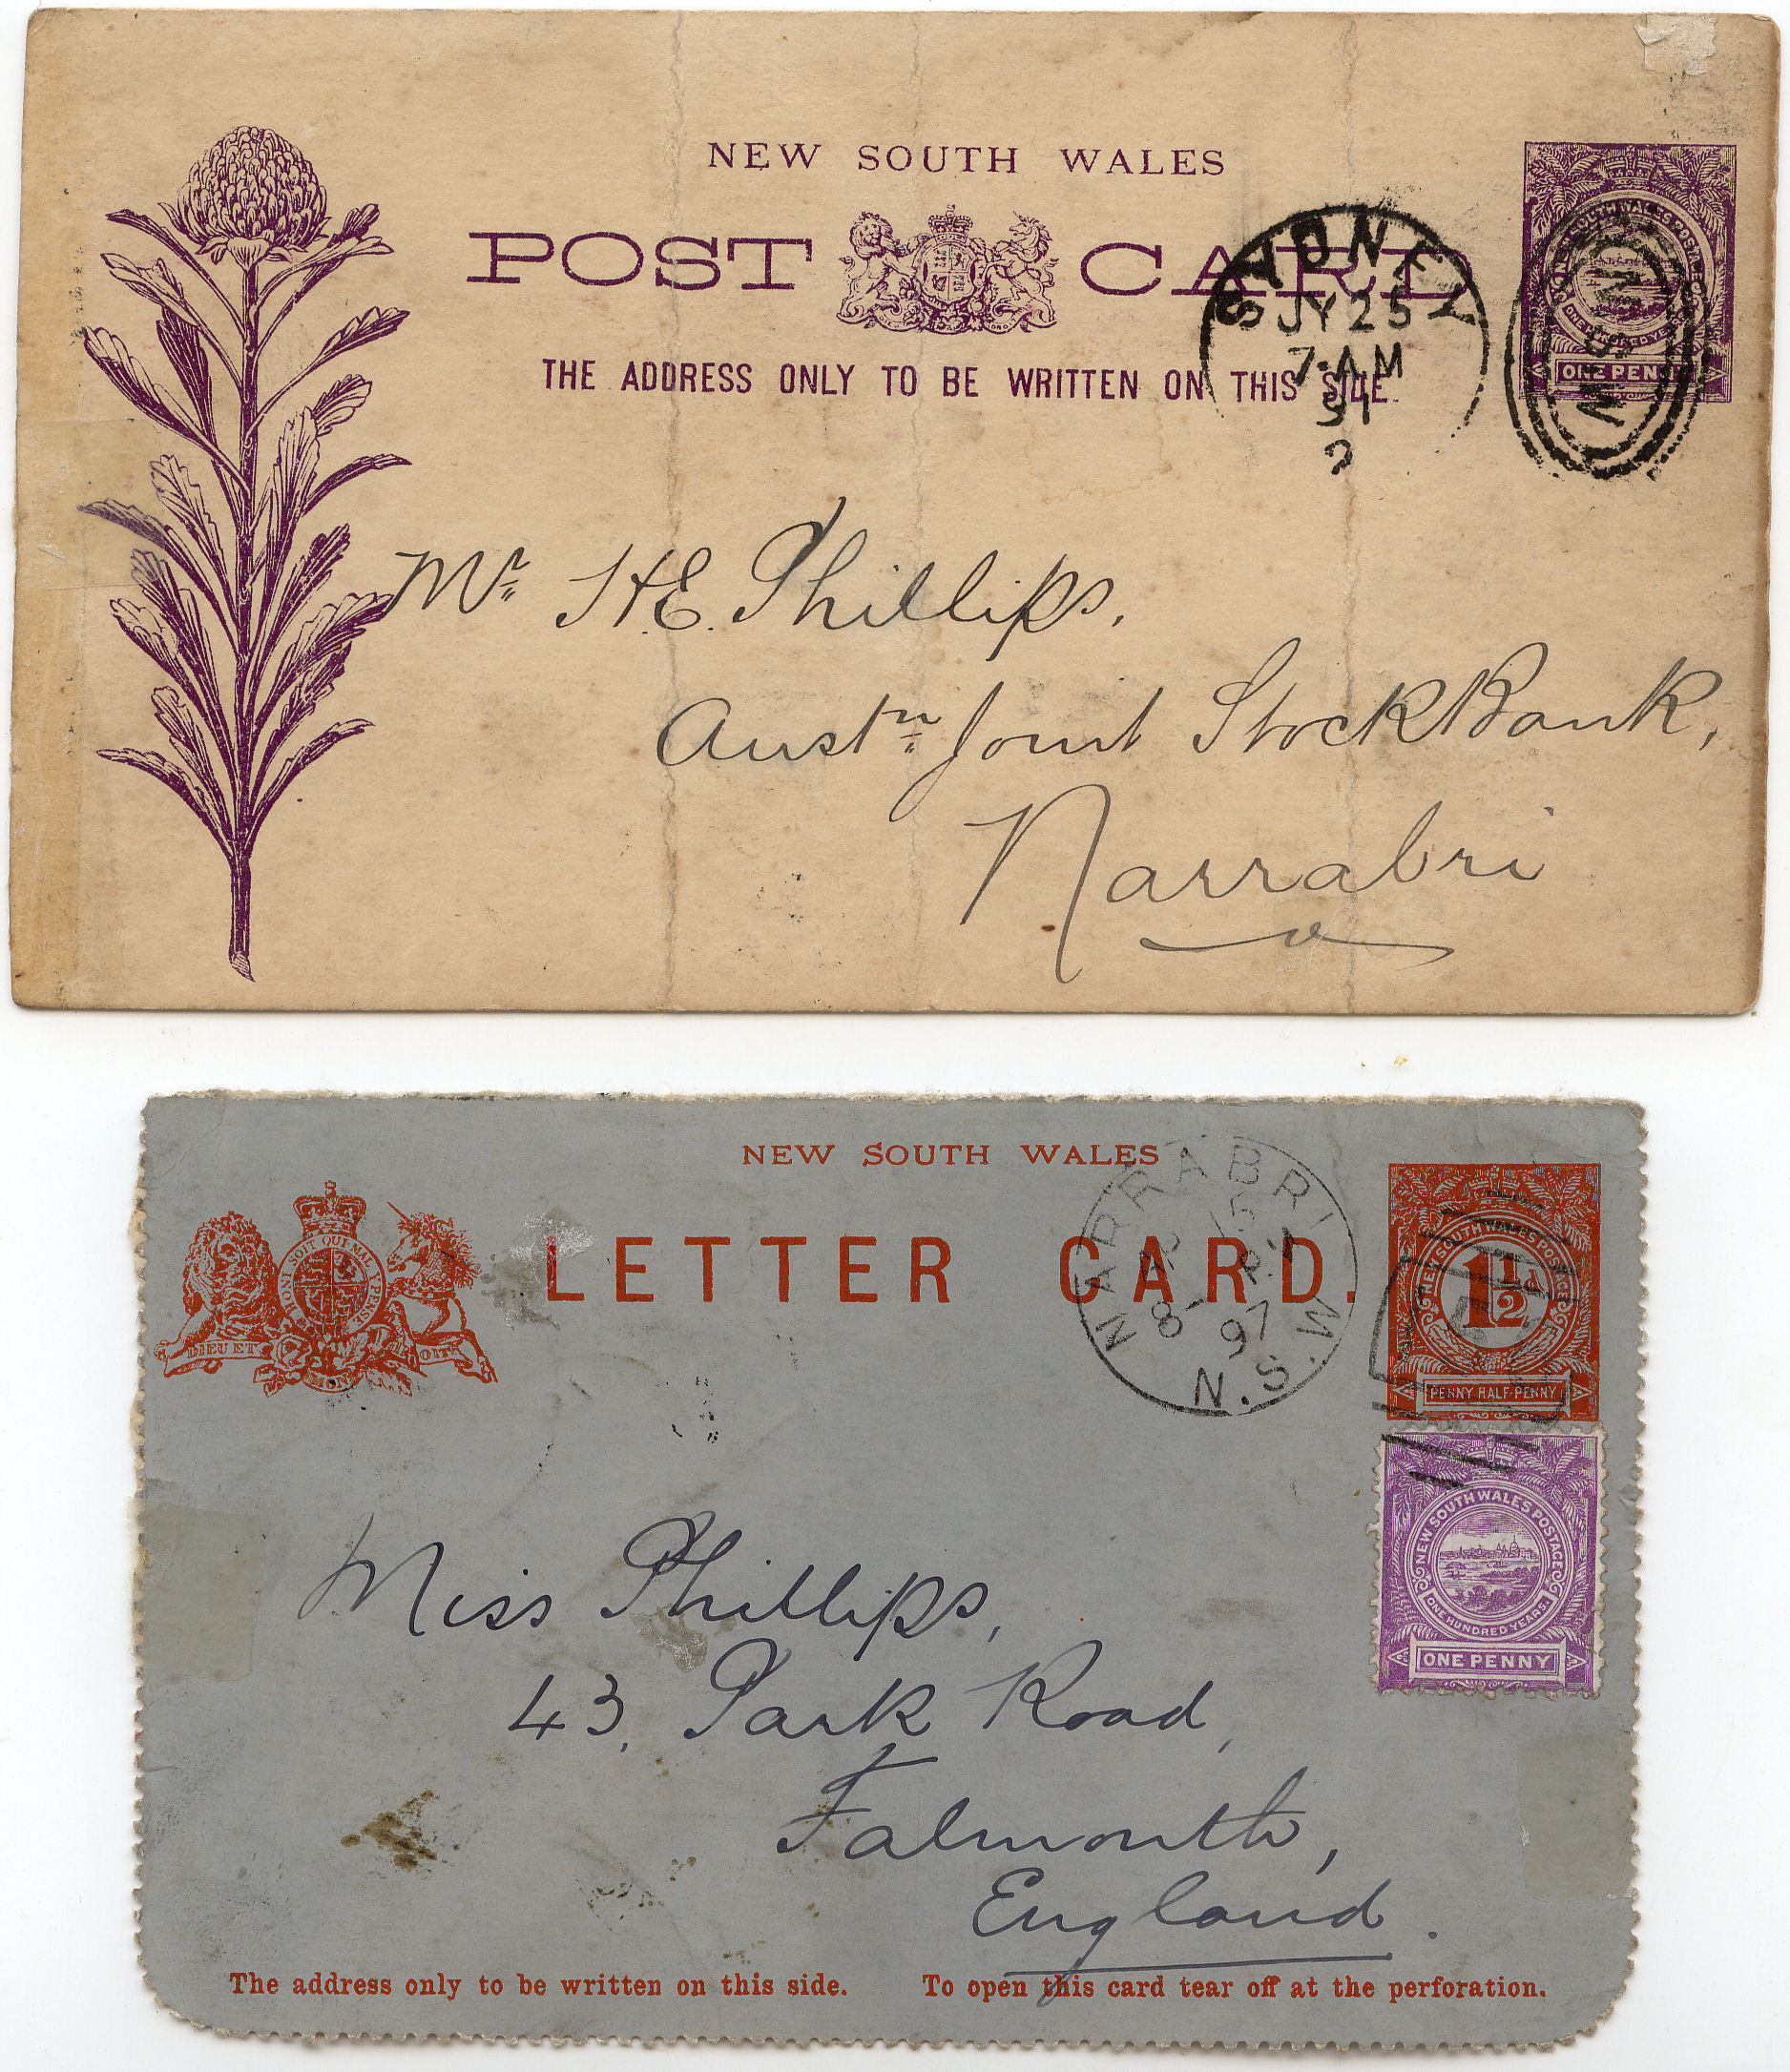 NEW SOUTH WALES
POST CARD
THE ADDRESS ONLY TO BE WRITTEN ON THIS SIDE
SYDNEY
JY 25
7·AM
91
2
NEW SOUTH WALES POSTAGE
ONE HUNDRED YEARS
ONE PENNY
N.S.W
Mr. H.E. Phillips,
Austn. Joint Stock Bank,
Narrabri
NEW SOUTH WALES
LETTER CARD.
HONI SOIT QUI MAL Y PENSE
DIEU ET MON DROIT
NARRABRI
15
97
N.S.W
NEW SOUTH WALES POSTAGE
1½d
PENNY HALF-PENNY
NEW SOUTH WALES POSTAGE
ONE HUNDRED YEARS.
ONE PENNY
Miss Phillips,
43, Park Road,
Falmouth,
England.
The address only to be written on this side. To open this card tear off at the perforation.